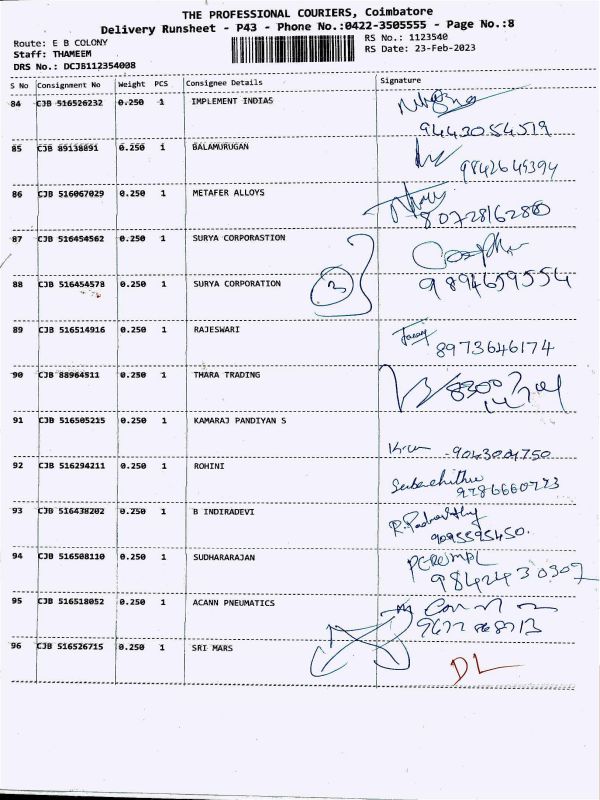 THE PROFESSIONAL COURIERS, Coimbatore
Delivery Runsheet - P43 - Phone No.:0422-3505555 - Page No.:8
Route: E B COLONY RS No.: 1123540
Staff: THAMEEM RS Date: 23-Feb-2023
DRS No.: DCJB112354008
S No Consignment No Weight PCS Consignee Details Signature
84 CJB 516526232 0.250 1 IMPLEMENT INDIAS
9443054519
85 CJB 89138891 0.250 1 BALAMURUGAN
9842649394
86 CJB 516067029 0.250 1 METAFER ALLOYS
8072816280
87 CJB 516454562 0.250 1 SURYA CORPORASTION
88 CJB 516454578 0.250 1 SURYA CORPORATION
3 9894659554
89 CJB 516514916 0.250 1 RAJESWARI
8973646174
90 CJB 88964511 0.250 1 THARA TRADING
91 CJB 516505215 0.250 1 KAMARAJ PANDIYAN S
9043004750
92 CJB 516294211 0.250 1 ROHINI
9786660773
93 CJB 516438202 0.250 1 B INDIRADEVI
9095595450.
94 CJB 516508110 0.250 1 SUDHARARAJAN PERUMAL
9842430307
95 CJB 516518052 0.250 1 ACANN PNEUMATICS
96 CJB 516526715 0.250 1 SRI MARS
DL